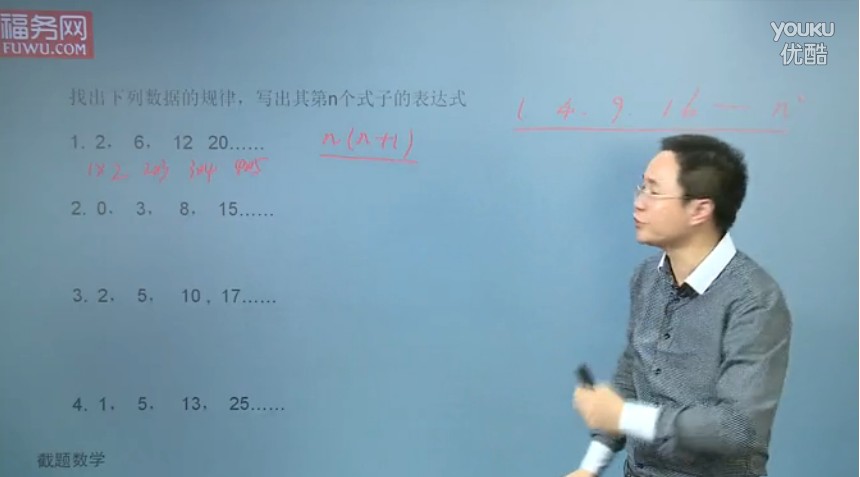 福务网
FUWU.COM
YOUKU
优酷
找出下列数据的规律，写出其第n个式子的表达式
1 4. 9. 16 — n²
1. 2， 6， 12 20…… n(n+1)
1×2 2×3 3×4 4×5
2. 0， 3， 8， 15……
3. 2， 5， 10 , 17……
4. 1， 5， 13， 25……
截题数学